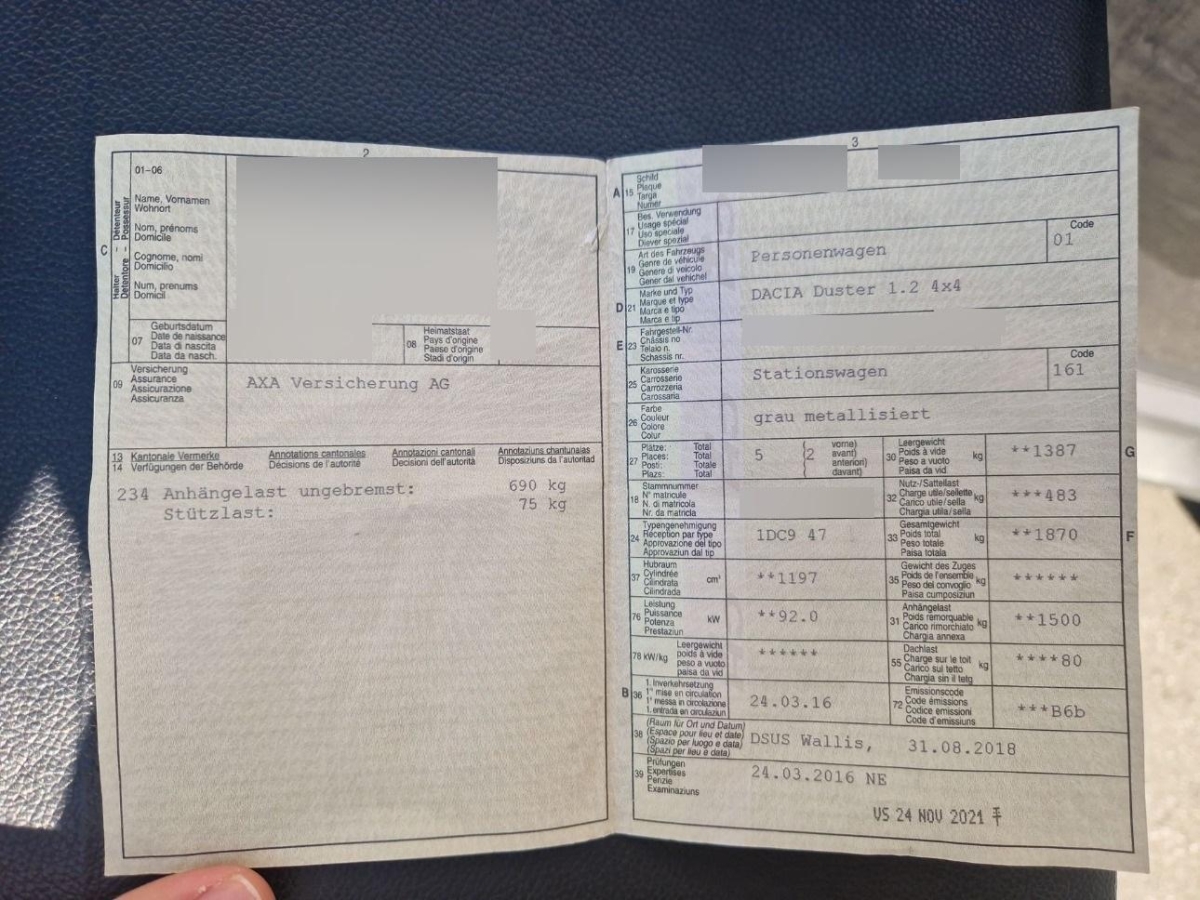 2
01-06
Name, Vornamen
Wohnort
Nom, prénoms
Domicile
Cognome, nomi
Domicilio
Num, prenums
Domicil
C
Halter – Détenteur
Detentore – Possessur
07
Geburtsdatum
Date de naissance
Data di nascita
Data da nasch.
08
Heimatstaat
Pays d'origine
Paese d'origine
Stadi d'origin
09
Versicherung
Assurance
Assicurazione
Assicuranza
AXA Versicherung AG
13 Kantonale Vermerke Annotations cantonales Annotazioni cantonali Annotaziuns chantunalas
14 Verfügungen der Behörde Décisions de l'autorité Decisioni dell'autorità Disposiziuns da l'autoritad
234 Anhängelast ungebremst: 690 kg
Stützlast: 75 kg
3
A
15
Schild
Plaque
Targa
Numer
17
Bes. Verwendung
Usage spécial
Uso speciale
Diever spezial
19
Art des Fahrzeugs
Genre de véhicule
Genere di veicolo
Gener dal vehichel
Personenwagen
Code
01
D
21
Marke und Typ
Marque et type
Marca e tipo
Marca e tip
DACIA Duster 1.2 4x4
E
23
Fahrgestell-Nr.
Châssis no
Telaio n.
Schassis nr.
25
Karosserie
Carrosserie
Carrozzeria
Carossaria
Stationswagen
Code
161
26
Farbe
Couleur
Colore
Colur
grau metallisiert
27
Plätze: Total
Places: Total
Posti: Totale
Plazs: Total
5
(2
vorne)
avant)
anteriori)
davant)
30
Leergewicht
Poids à vide
Peso a vuoto
Paisa da vid
kg
**1387
G
18
Stammnummer
N° matricule
N. di matricola
Nr. da matricla
32
Nutz-/Sattellast
Charge utile/sellette
Carico utile/sella
Chargia utila/sella
kg
***483
24
Typengenehmigung
Réception par type
Approvazione del tipo
Approvaziun dal tip
1DC9 47
33
Gesamtgewicht
Poids total
Peso totale
Paisa totala
kg
**1870
F
37
Hubraum
Cylindrée
Cilindrata
Cilindrada
cm³
**1197
35
Gewicht des Zuges
Poids de l'ensemble
Peso del convoglio
Paisa cumposiziun
kg
******
76
Leistung
Puissance
Potenza
Prestaziun
kW
**92.0
31
Anhängelast
Poids remorquable
Carico rimorchiato
Chargia annexa
kg
**1500
78 kW/kg
Leergewicht
poids à vide
peso a vuoto
paisa da vid
******
55
Dachlast
Charge sur le toit
Carico sul tetto
Chargia sin il tetg
kg
****80
B
36
1. Inverkehrsetzung
1re mise en circulation
1a messa in circolazione
1. entrada en circulaziun
24.03.16
72
Emissionscode
Code émissions
Codice emissioni
Code d'emissiuns
***B6b
38
(Raum für Ort und Datum)
(Espace pour lieu et date)
(Spazio per luogo e data)
(Spazi per lieu e data)
DSUS Wallis, 31.08.2018
39
Prüfungen
Expertises
Perizie
Examinaziuns
24.03.2016 NE
VS 24 NOV 2021